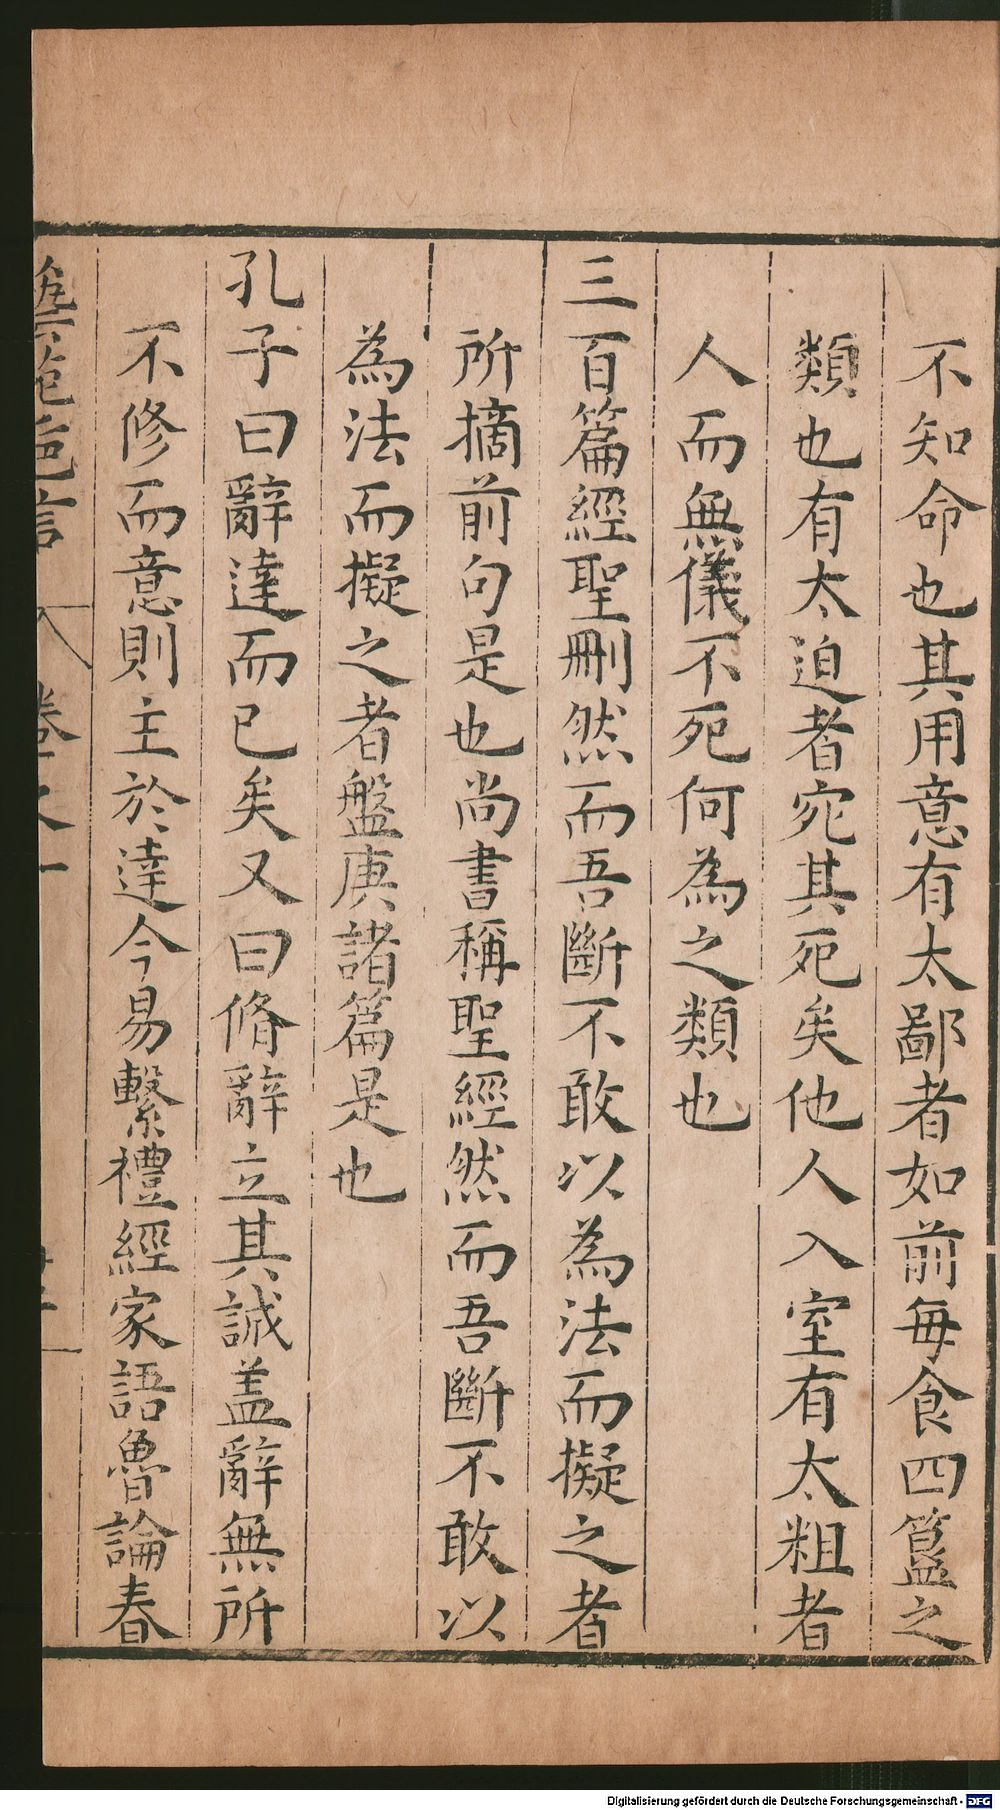 不知命也其用意有太鄙者如前每食四簋之
類也有太迫者宛其死矣他人入室有太粗者
人而無儀不死何為之類也
三百篇經聖刪然而吾斷不敢以為法而擬之者
所摘前句是也尚書稱聖經然而吾斷不敢以
為法而擬之者盤庚諸篇是也
孔子曰辭達而已矣又曰脩辭立其誠盖辭無所
不修而意則主於達今易繫禮經家語魯論春
藝苑巵言 卷之一
Digitalisierung gefördert durch die Deutsche Forschungsgemeinschaft - DFG